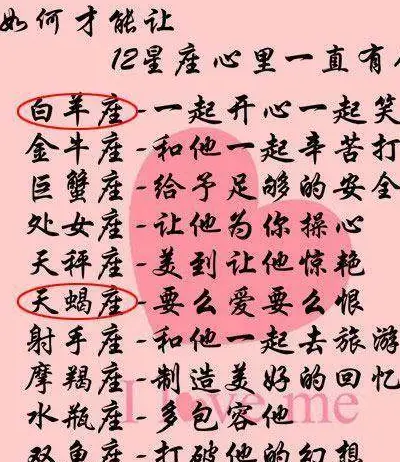 如何才能让
12星座心里一直有
白羊座-一起开心一起笑
金牛座-和他一起辛苦打
巨蟹座-给予足够的安全
处女座-让他为你操心
天秤座-美到让他惊艳
天蝎座-要么爱要么恨
射手座-和他一起去旅游
摩羯座-制造美好的回忆
水瓶座-多包容他
I love me
双鱼座-打破他的幻想